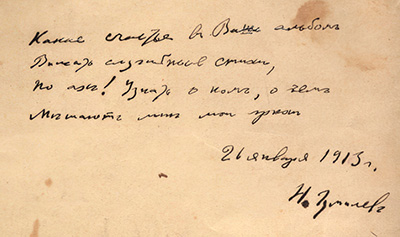 Какое счастье в Ваш альбом
Вписать случайные стихи,
Но ах! Узнать о ком, о чем
Мешают мне мои грехи
21 января 1913 г.
Н. Гумилевъ